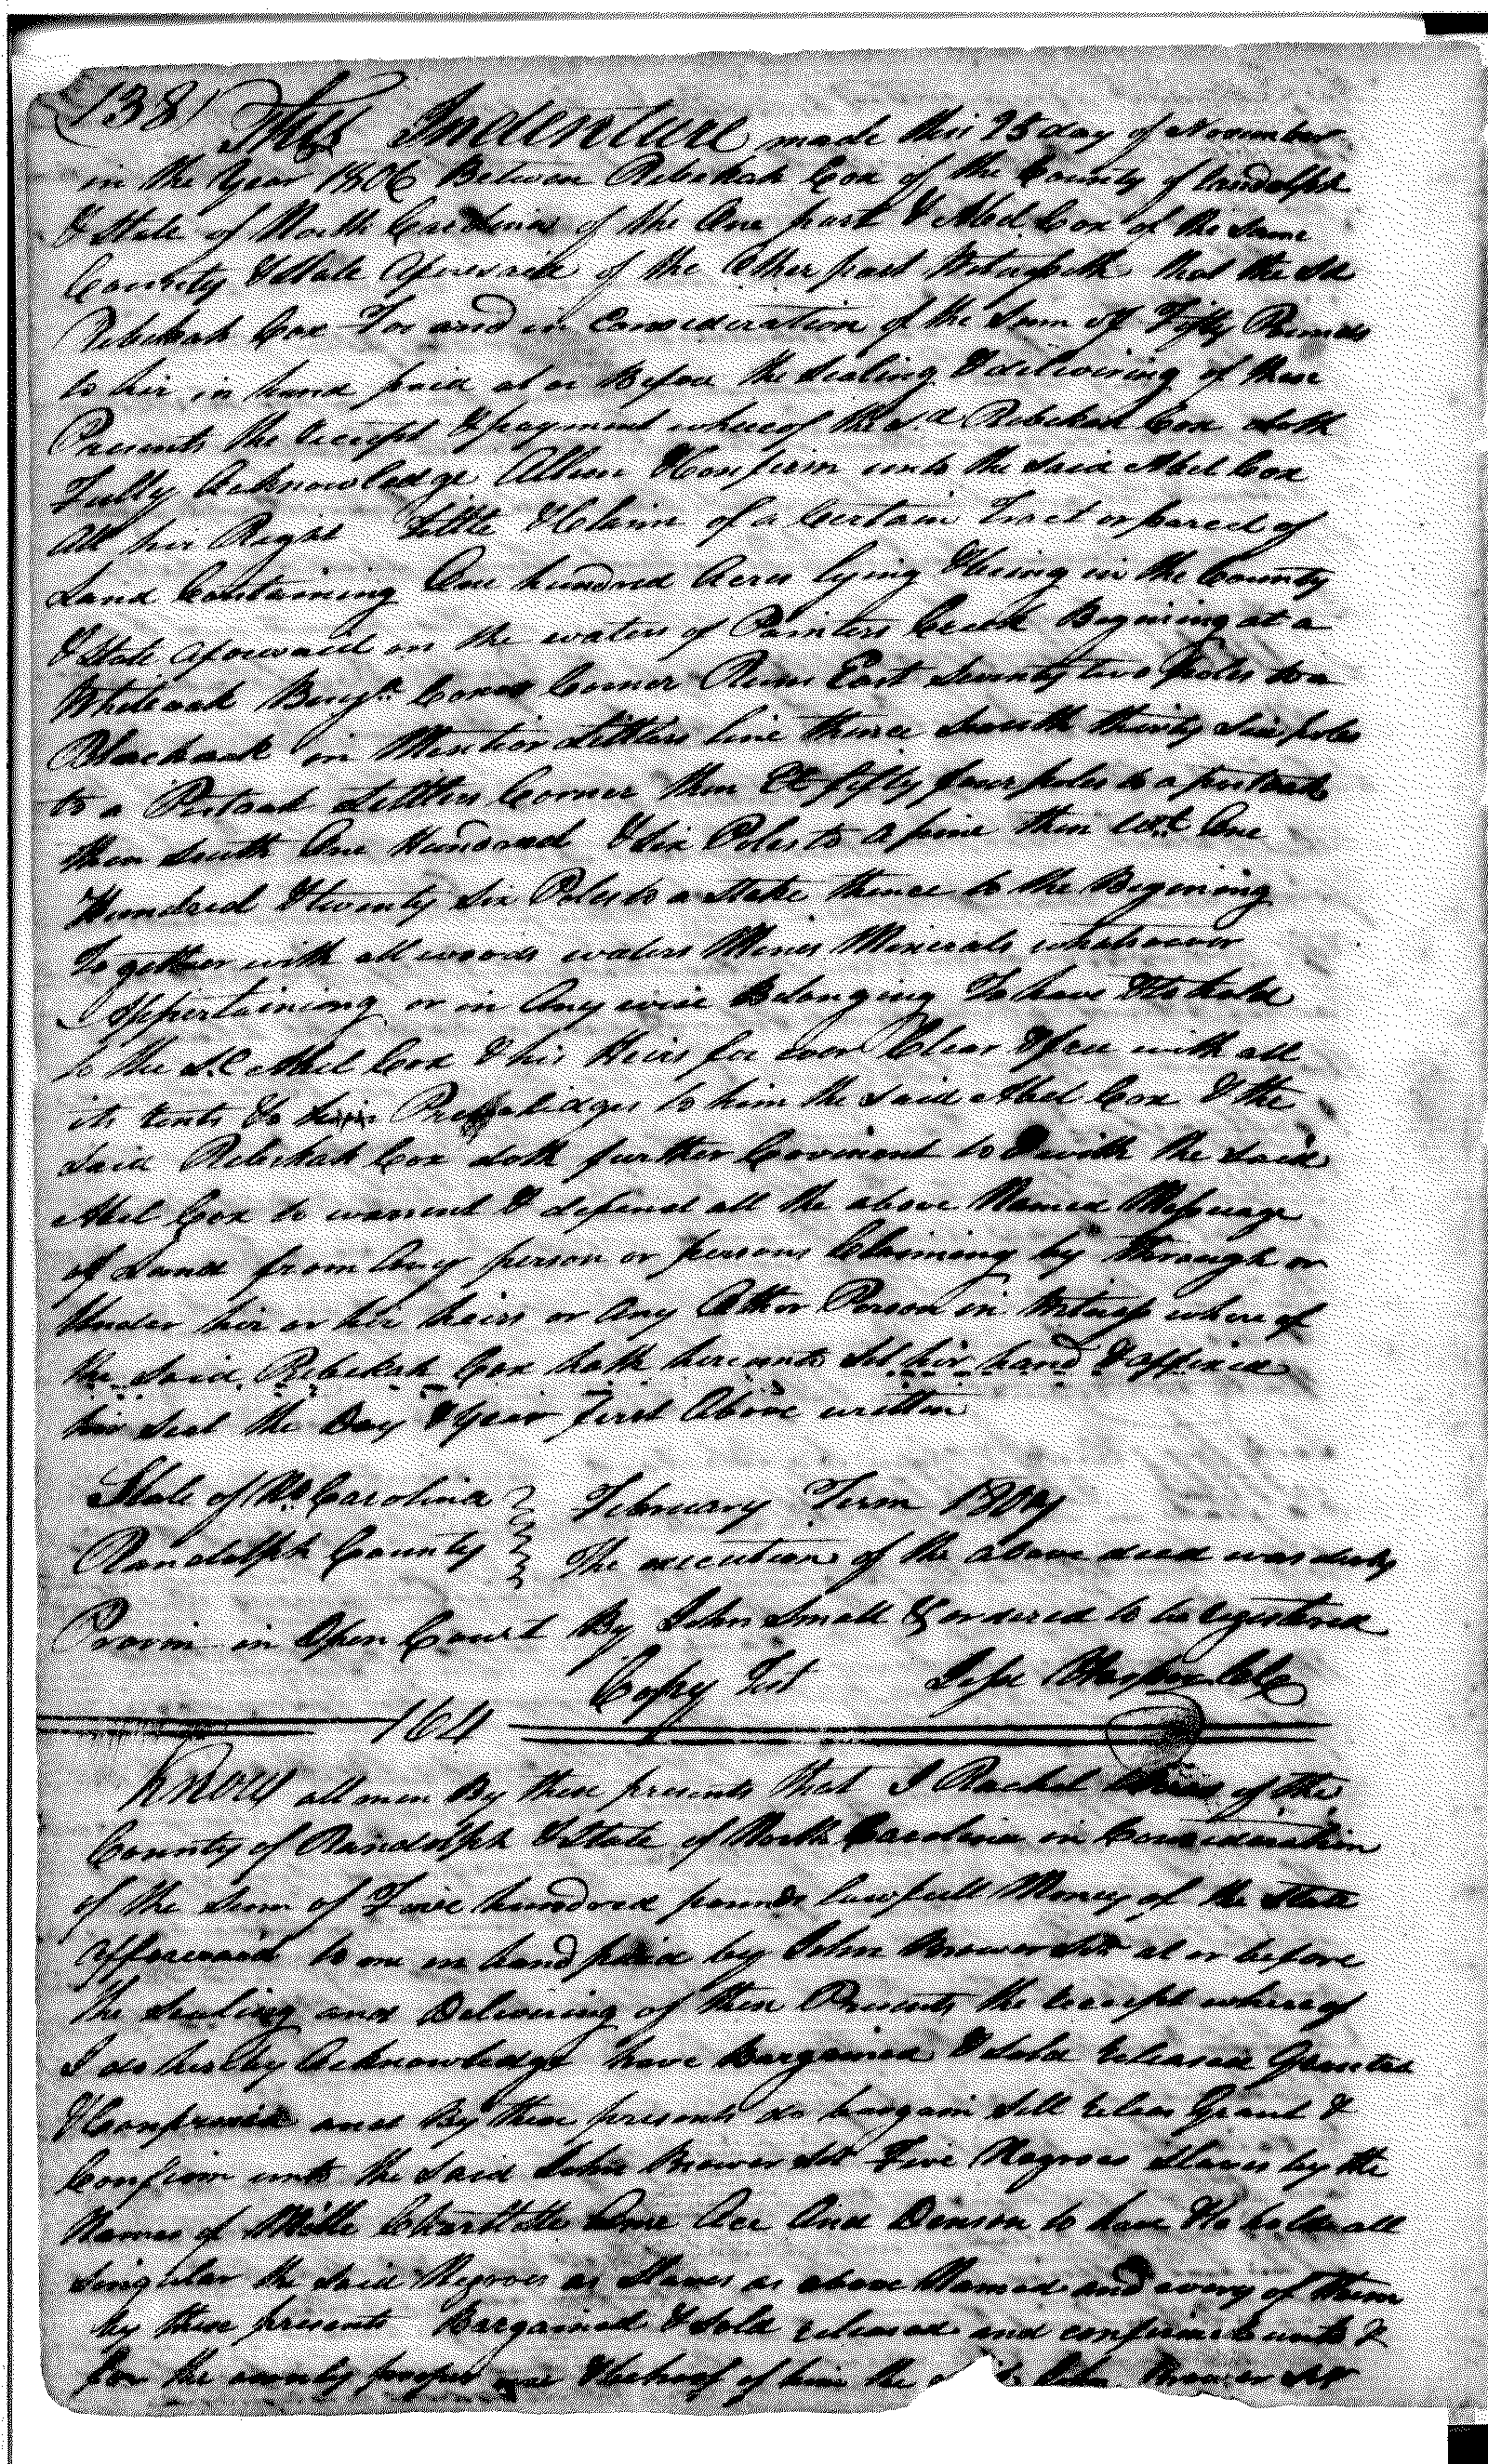 138
This Indenture made this 25 day of November
in the Year 1806 Between Rebekah Cox of the County of Randolph
& State of North Carolina of the One part & Abel Cox of the Same
County & State aforesaid of the Other part Witnesseth that the Sd
Rebekah Cox For and in Consideration of the Sum of Fifty Pounds
to hir in hand paid at or Before the Sealing & delivering of these
Presents the Receipt & payment whereof the s.d Rebekah Cox doth
Fully Acknowledge Allien & Confirm unto the said Abel Cox
All hir Right Tittle & Claim of a Certain Tract or parcel of
Land Containing One hundred Acres lying & being in the County
& State aforesaid on the waters of Painters Creek Begining at a
Whiteoak Benjn. Coxes Corner Runs East Seventy two Poles to a
Blackoak in Littlers line thence South thirty Six poles
to a Postoak Littlers Corner then Et fifty four poles to a postoak
then South One Hundred & Six Poles to a pine then wst One
Hundred & twenty Six Poles to a Stake thence to the Begining
Together with all woods waters Mines Minerals whatsoever
Appertaining or in Any wise Belonging To have & to hold
to the s.d Abel Cox & his Heirs for ever Clear & free with all
its to him the said Abel Cox & the
said Rebekah Cox doth further Covinant to & with the said
Abel Cox to warrent & defend all the above Named Messuage
of Land from Any person or persons Claiming by through or
Under hir or hir heirs or any Other Person in Witness where of
the said Rebekah Cox hath hereunto Set hir hand & affixed
hir seal the Day & Year First Above written
State of No. Carolina February Term 1807
Randolph County The execution of the above deed was duly
Proven in Open Court By John Small & ordered to be registered
Copy Test Jesse Harper Clk
164
Know all men By these presents that I Rachel of the
County of Randolph & State of North Carolina in Consideration
of the Sum of Five hundred pounds lawfull Money of the State
afforesaid to me in hand paid by John Brower Ser at or before
the Sealing and Delivering of these Presents the receipt whereof
I do hereby Acknowledge have Bargained & Sold released Granted
& Confirmed and By these presents do bargain Sell releas Grant &
Confirm unto the said John Brower Ser Five Negroes Slaves by the
Names of Mille Charllotte Ace And Denson to have & to hold all
Singular the said Negroes as Slaves as above Named and every of them
by these presents Bargained & Sold released and confirmed unto &
for the only proper use & behoof of him the John Brower Ser